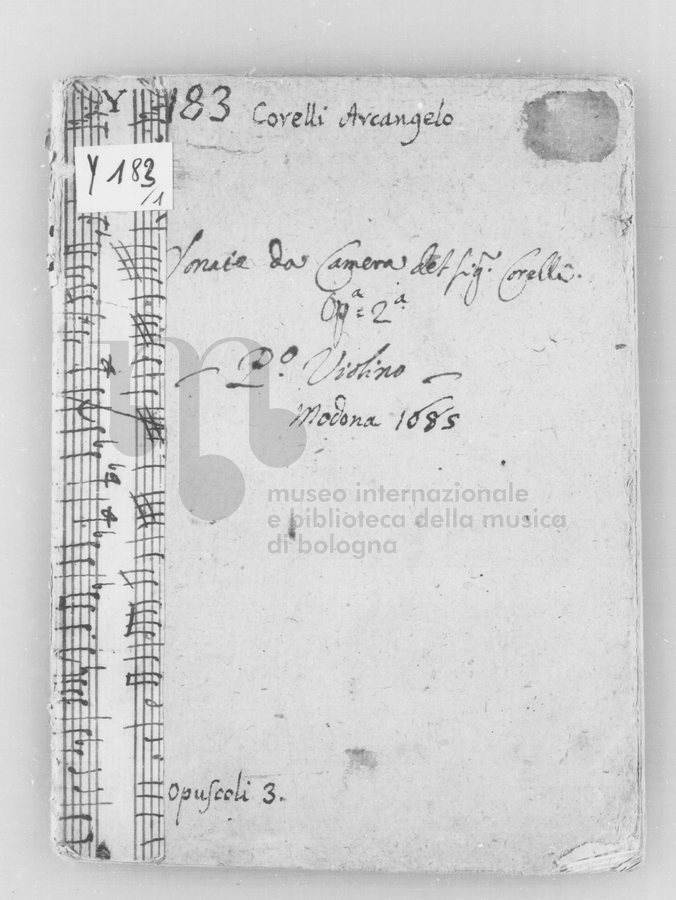 Y 183 Corelli Arcangelo
Y 183
/1
Sonate da Camera del Sig.r Corelli.
Op.a = 2.a
P.o Violino
Modona 1685
museo internazionale
e biblioteca della musica
di bologna
Opuscoli 3.